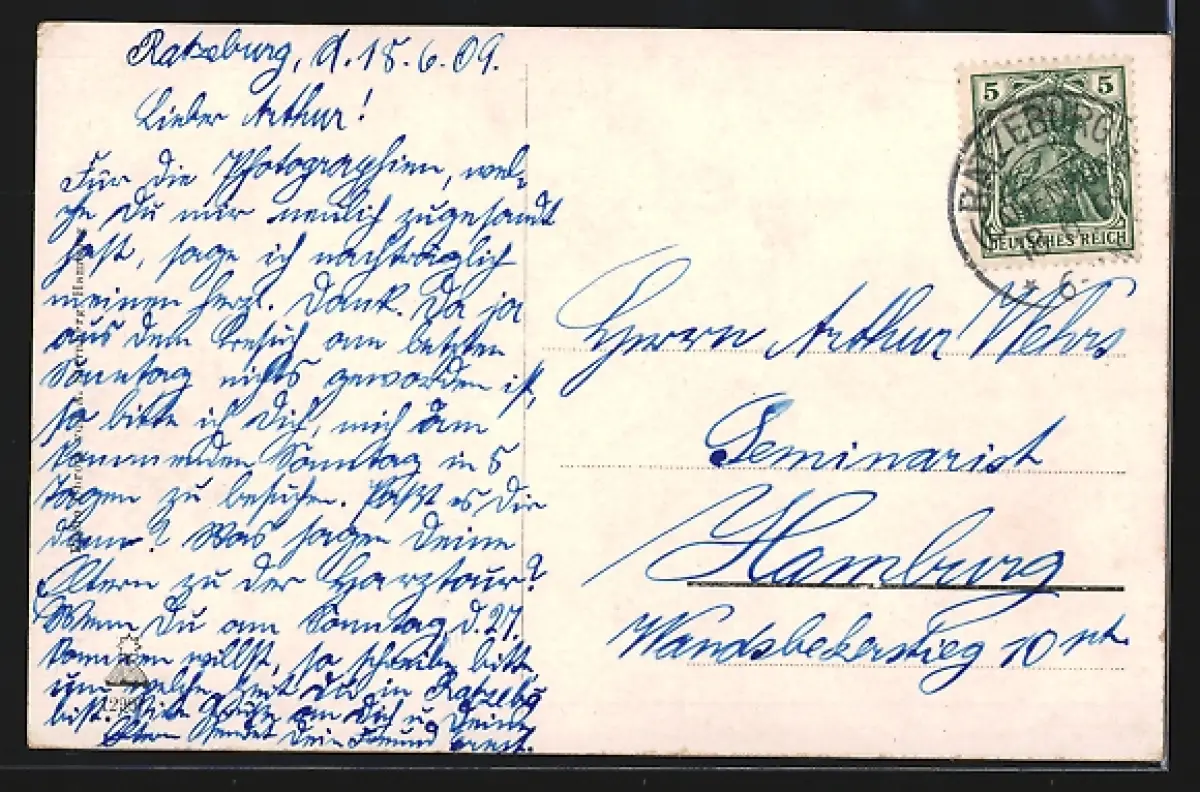 Ratzeburg, d. 18.6.09.
Lieber Arthur!
Für die Photographien, wel-
che Du mir neulich zugesandt
hast, sage ich nachträglich
meinen herzl. Dank. Da ja
aus dem Besuch am letzten
Sonntag nichts geworden ist,
so bitte ich Dich, mich am
kommenden Sonntag in 8
Tagen zu besuchen. Paßt es Dir
dann? Was sagen Deine
Eltern zu der Harztour?
Wenn Du am Sonntag, d. 27.
kommen willst, so schreibe bitte,
um welche Zeit Du in Ratzeb
bist. Viele Grüße an Dich u. Deine
Eltern sendet Dein Freund Ernst.
5 5
DEUTSCHES REICH
RATZEBURG
Herrn Arthur Wehrs
Seminarist
Hamburg
Wandsbekerstieg 10